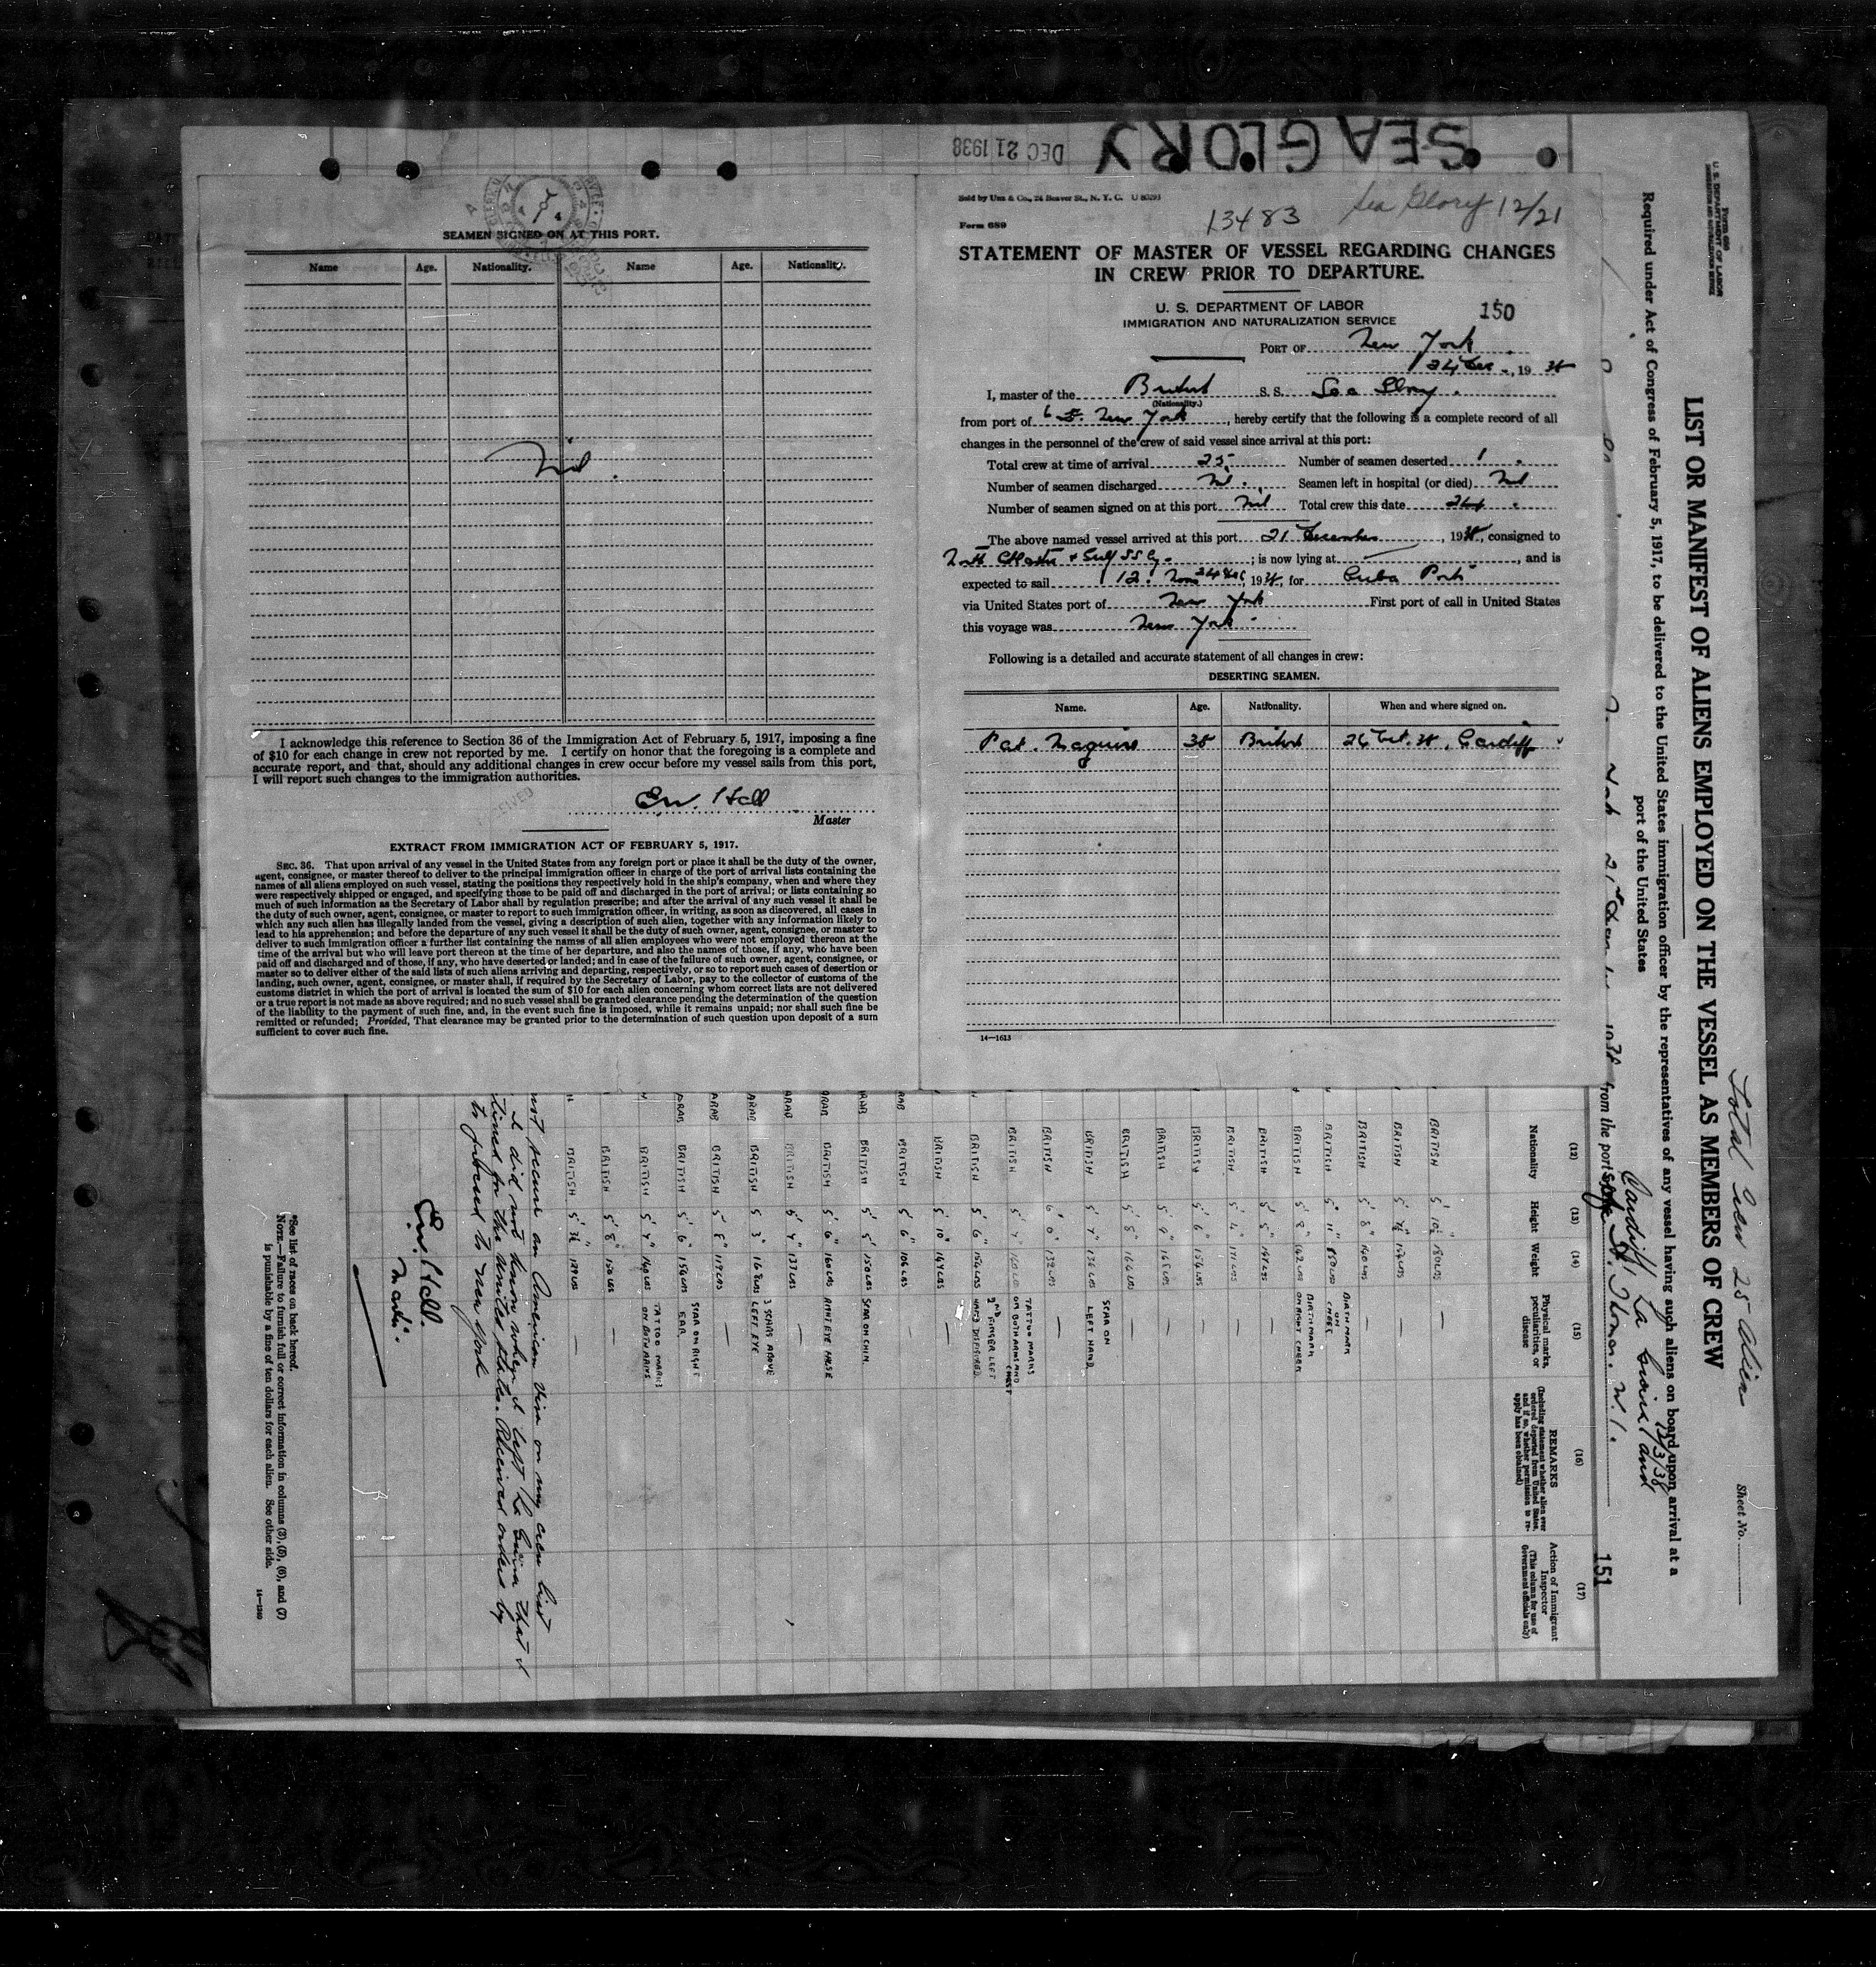 SEA GLORY
DEC 21 1938
SEAMEN SIGNED ON AT THIS PORT.
Name Age. Nationality. Name Age. Nationality.
Nil.
I acknowledge this reference to Section 36 of the Immigration Act of February 5, 1917, imposing a fine
of $10 for each change in crew not reported by me. I certify on honor that the foregoing is a complete and
accurate report, and that, should any additional changes in crew occur before my vessel sails from this port,
I will report such changes to the immigration authorities.
E.W. Hall
Master
EXTRACT FROM IMMIGRATION ACT OF FEBRUARY 5, 1917.
SEC. 36. That upon arrival of any vessel in the United States from any foreign port or place it shall be the duty of the owner,
agent, consignee, or master thereof to deliver to the principal immigration officer in charge of the port of arrival lists containing the
names of all aliens employed on such vessel, stating the positions they respectively hold in the ship's company, when and where they
were respectively shipped or engaged, and specifying those to be paid off and discharged in the port of arrival; or lists containing so
much of such information as the Secretary of Labor shall by regulation prescribe; and after the arrival of any such vessel it shall be
the duty of such owner, agent, consignee, or master to report to such immigration officer, in writing, as soon as discovered, all cases in
which any such alien has illegally landed from the vessel, giving a description of such alien, together with any information likely to
lead to his apprehension; and before the departure of any such vessel it shall be the duty of such owner, agent, consignee, or master to
deliver to such immigration officer a further list containing the names of all alien employees who were not employed thereon at the
time of the arrival but who will leave port thereon at the time of her departure, and also the names of those, if any, who have been
paid off and discharged and of those, if any, who have deserted or landed; and in case of the failure of such owner, agent, consignee, or
master so to deliver either of the said lists of such aliens arriving and departing, respectively, or so to report such cases of desertion or
landing, such owner, agent, consignee, or master shall, if required by the Secretary of Labor, pay to the collector of customs of the
customs district in which the port of arrival is located the sum of $10 for each alien concerning whom correct lists are not delivered
or a true report is not made as above required; and no such vessel shall be granted clearance pending the determination of the question
of the liability to the payment of such fine, and, in the event such fine is imposed, while it remains unpaid; nor shall such fine be
remitted or refunded; Provided, That clearance may be granted prior to the determination of such question upon deposit of a sum
sufficient to cover such fine.
Sold by Unz & Co., 24 Beaver St., N. Y. C. U 80293
13483 Sea Glory 12/21
Form 689
STATEMENT OF MASTER OF VESSEL REGARDING CHANGES
IN CREW PRIOR TO DEPARTURE.
U. S. DEPARTMENT OF LABOR
IMMIGRATION AND NATURALIZATION SERVICE
150
PORT OF New York
24 Dec., 19 38
I, master of the British S. S. Sea Glory.
(Nationality.)
from port of New York, hereby certify that the following is a complete record of all
changes in the personnel of the crew of said vessel since arrival at this port:
Total crew at time of arrival 25. Number of seamen deserted 1.
Number of seamen discharged Nil. Seamen left in hospital (or died) Nil
Number of seamen signed on at this port Nil Total crew this date 24.
The above named vessel arrived at this port 21 December, 1938, consigned to
North Atlantic & Gulf SS Co.; is now lying at , and is
expected to sail 12. Noon 24 Dec, 1938, for Cuba Port
via United States port of New York First port of call in United States
this voyage was New York.
Following is a detailed and accurate statement of all changes in crew:
DESERTING SEAMEN.
Name. Age. Nationality. When and where signed on.
Pat. Maguire 38 British 26 Oct. 38, Cardiff
14—1613
Form 680
U. S. DEPARTMENT OF LABOR
IMMIGRATION AND NATURALIZATION SERVICE
Total Crew 25 Alien
Sheet No.
LIST OR MANIFEST OF ALIENS EMPLOYED ON THE VESSEL AS MEMBERS OF CREW
Required under Act of Congress of February 5, 1917, to be delivered to the United States immigration officer by the representatives of any vessel having such aliens on board upon arrival at a
port of the United States
12/3/38
Cardiff, La Guaira and
from the port of St. Thomas. W.I.
151
(12) (13) (14) (15) (16) (17)
Nationality Height Weight Physical marks, peculiarities, or disease
REMARKS
(Including statement whether alien ever ordered deported from United States, and if so, whether permission to reapply has been obtained)
Action of Immigrant Inspector
(This column for use of Government officials only)
BRITISH 5' 10½" 180 LBS —
BRITISH
BRITISH 5' 8" 140 LBS
BRITISH 5' 11" 150 LBS BIRTH MARK ON CHEEK
BRITISH 5' 8" 142 LBS BIRTH MARK ON RIGHT CHEEK
BRITISH 5' 5" —
BRITISH 5' 4" 171 LBS —
BRITISH 5' 6" 154 LBS —
BRITISH 5' 9" 165 LBS —
BRITISH 5' 8" 166 LBS —
BRITISH 5' 7" 136 LBS SCAR ON LEFT HAND
BRITISH 6' 0" 132 LBS —
BRITISH 5' 7" 160 LBS TATTOO MARKS ON BOTH ARMS AND CHEST
BRITISH 5' 6" 156 LBS 2ND FINGER LEFT HAND DISFIGURED
BRITISH 5' 10" 164 LBS —
ARAB BRITISH 5' 6" 106 LBS —
ARAB BRITISH 5' 5" 150 LBS SCAR ON CHIN
ARAB BRITISH 5' 6" 160 LBS RIGHT EYE FALSE
ARAB BRITISH 5' 4" 137 LBS —
ARAB BRITISH 5' 3" 168 LBS 3 SCARS ABOVE LEFT EYE
ARAB BRITISH 5' 8" 119 LBS —
ARAB BRITISH 5' 6" 156 LBS SCAR ON RIGHT EAR
BRITISH 5' 4" 140 LBS TATTOO MARKS ON BOTH ARMS
BRITISH 5' 8" 150 LBS —
BRITISH 5' 3½" 129 LBS —
not secure an American Visa on my crew list
I did not know when I left La Guaira that I
for the United States. Received orders
to proceed to New York
E.W. Hall.
Master.
*See list of races on back hereof.
NOTE.—Failure to furnish full or correct information in columns (3), (5), (6), and (7)
is punishable by a fine of ten dollars for each alien. See other side.
14—1240